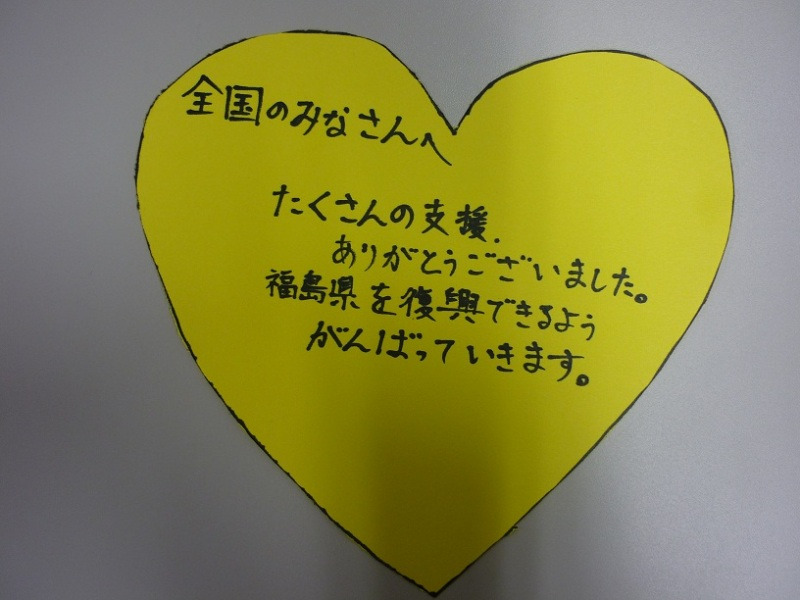 全国のみなさんへ
たくさんの支援、
ありがとうございました。
福島県を復興できるよう
がんばっていきます。